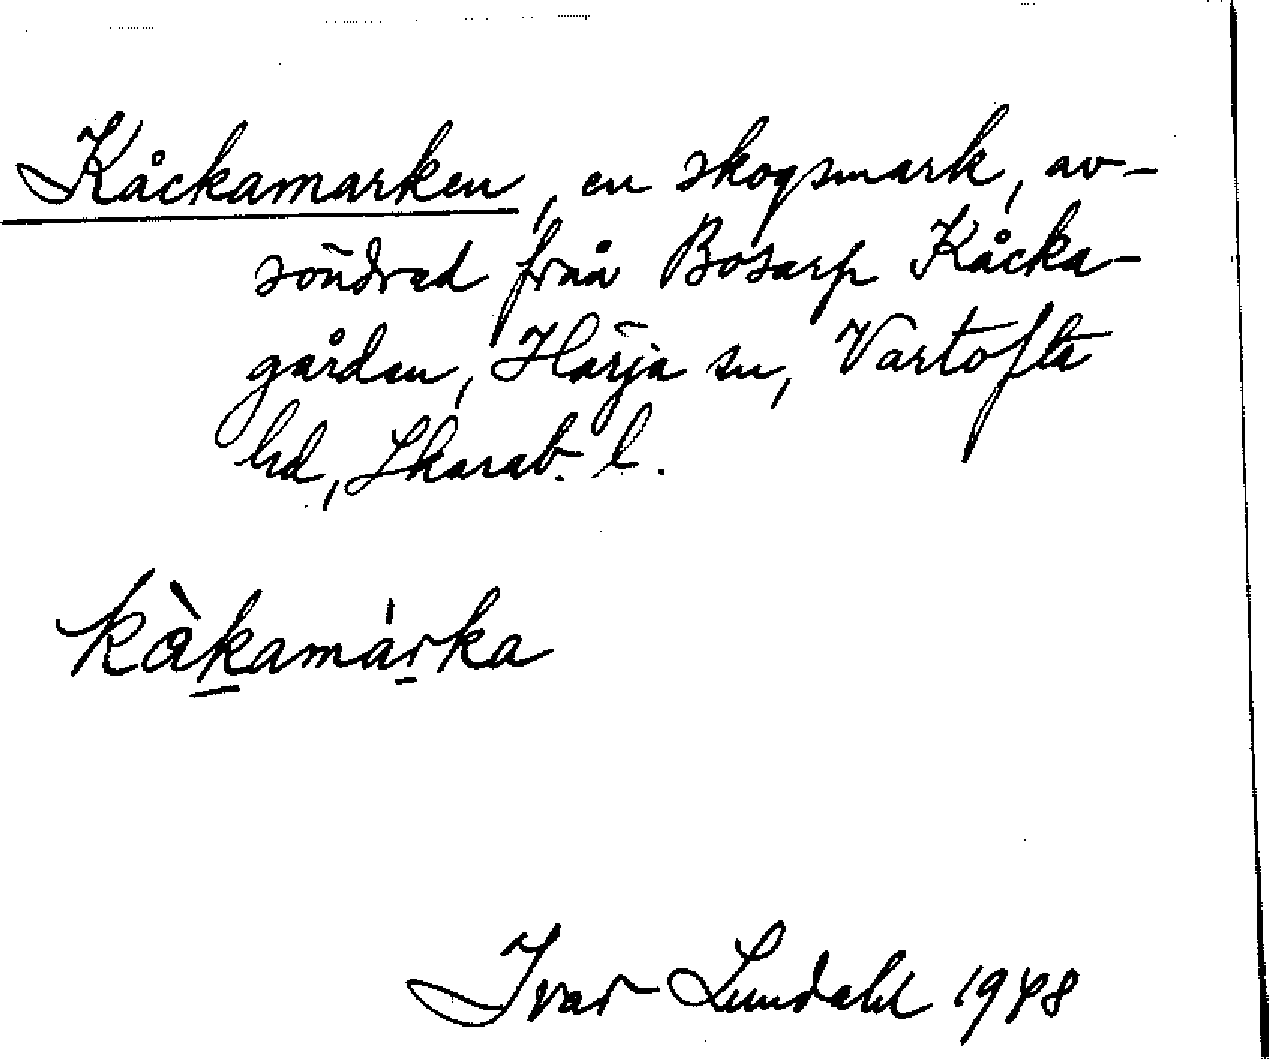 Kåckamarken, en skogsmark, av-
söndrad från Bosarp Kåcka-
gården, Härja sn, Vartofta
hd, Skarab. l.
kàkamárka
Ivar Lundahl 1948